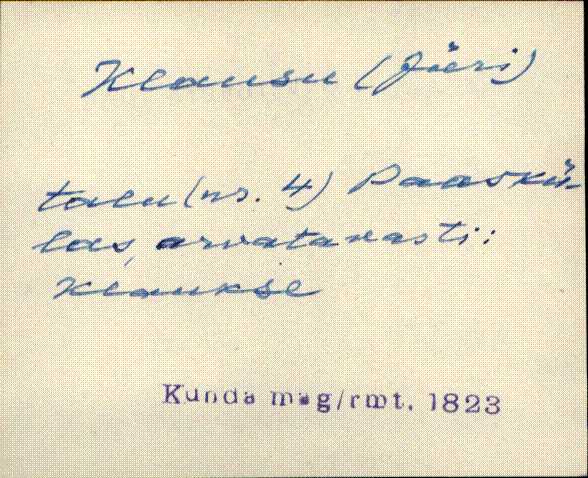 Klausu (Jüri)
talu (nr. 4) Paaskü-
las, arvatavasti:
Klaukse
Kunda mag/rmt. 1823